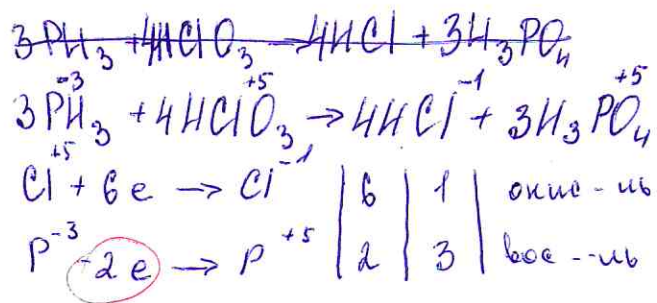 3PH₃ + 4HClO₃ → 4HCl + 3H₃PO₄
3P⁻³H₃ + 4HCl⁺⁵O₃ → 4HCl⁻¹ + 3H₃P⁺⁵O₄
Cl⁺⁵ + 6e → Cl⁻¹ | 6 | 1 | окис-ль
P⁻³ -2e → P⁺⁵ | 2 | 3 | вос--ль